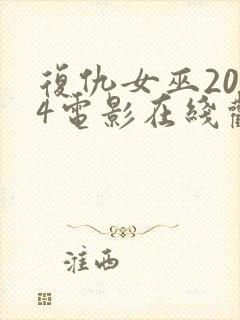 復仇女巫20
4電影在綫
淮西